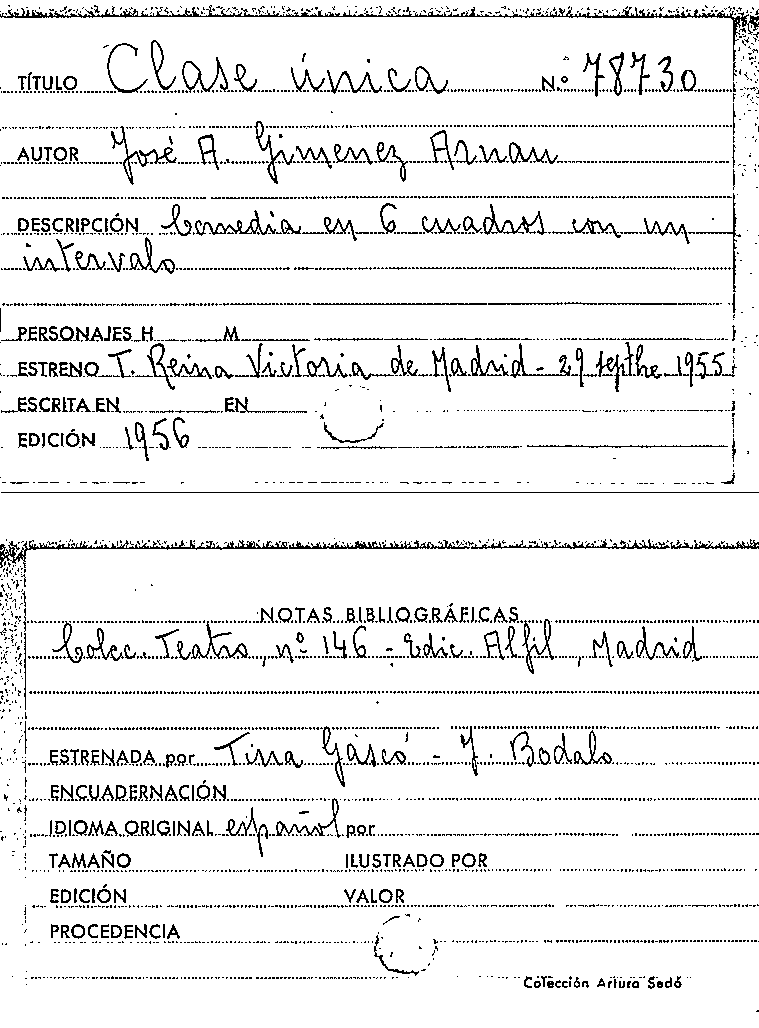 TÍTULO Clase única N.º 78730
AUTOR José A. Gimenez Arnau
DESCRIPCIÓN Comedia en 6 cuadros con un
intervalo
PERSONAJES H M
ESTRENO T. Reina Victoria de Madrid - 29 septbre 1955
ESCRITA EN EN
EDICIÓN 1956
NOTAS BIBLIOGRÁFICAS
Colec. Teatro, nº 146 - Edic. Alfil, Madrid
ESTRENADA por Tina Gascó - J. Bodalo
ENCUADERNACIÓN
IDIOMA ORIGINAL español por
TAMAÑO ILUSTRADO POR
EDICIÓN VALOR
PROCEDENCIA
Colección Arturo Sedó